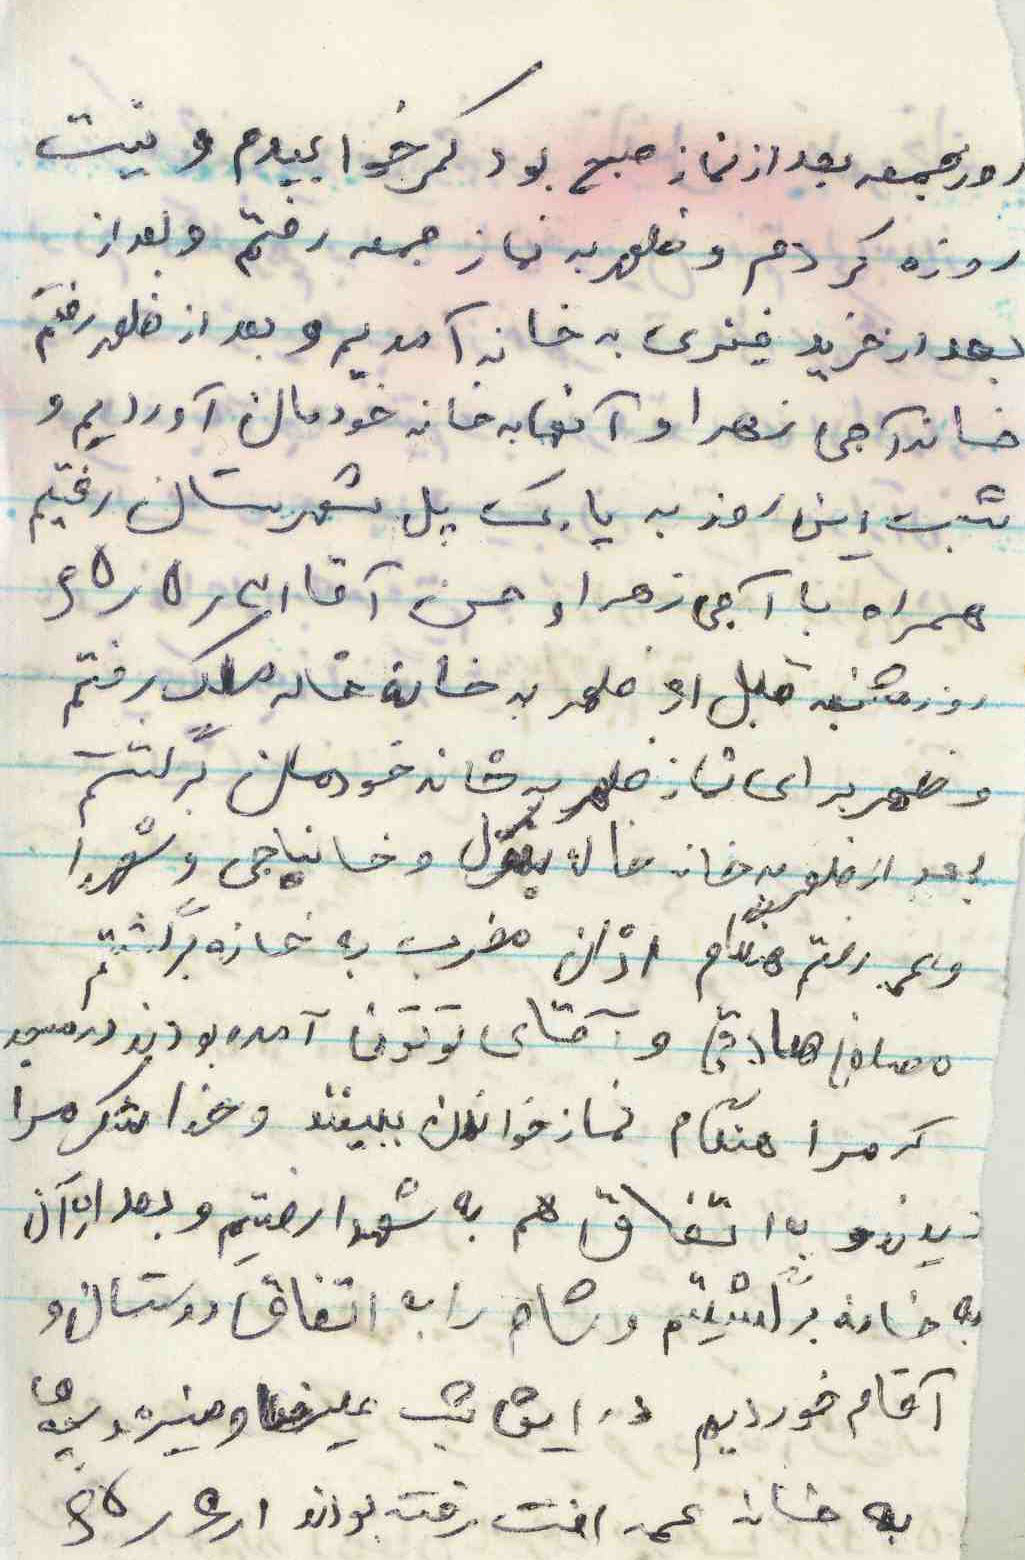 روز جمعه بعد از نماز صبح بود که خوابیدم و نیت
روزه کردم و ظهر به نماز جمعه رفتم و بعد از
بعد از خرید فنری به خانه آمدیم و بعد از ظهر رفتم
خانه آجی زهرا و آنها به خانه خودمان آوردیم و
شب این روز به پارک پل شهرستان رفتیم
همراه با آجی زهرا و حسن آقا ۶۵ر۵ر۳۱
روز شنبه قبل از ظهر به خانه خاله ملک رفتم
و ظهر برای نماز ظهر به خانه خودمان برگشتم
بعد از ظهر به خانه خاله بتول و خانباجی و شهدا
رفتم هنگام اذان مغرب به خانه برگشتم
صادقی و آقای توتونی آمده بودند در مسجد
که مرا هنگام نماز خواندن ببینند و خدا شکر مرا
دیدند و به اتفاق هم به شهدا رفتیم و بعد از آن
به خانه برگشتیم و شام را به اتفاق دوستان و
آقام خوردیم در این شب علیرضا و منیژه و بچه ها
به خانه عمه رفته بودند ۶۵ر۶ر۱